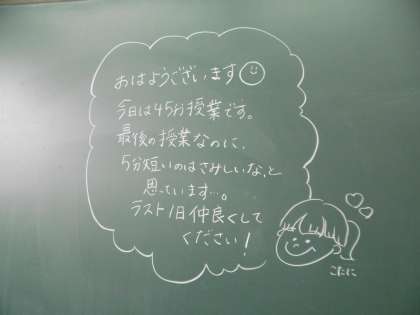 おはようございます
今日は45分授業です。
最後の授業なのに、
5分短いのはさみしいな、と
思っています…。
ラスト1日仲良くして
ください!
こたに